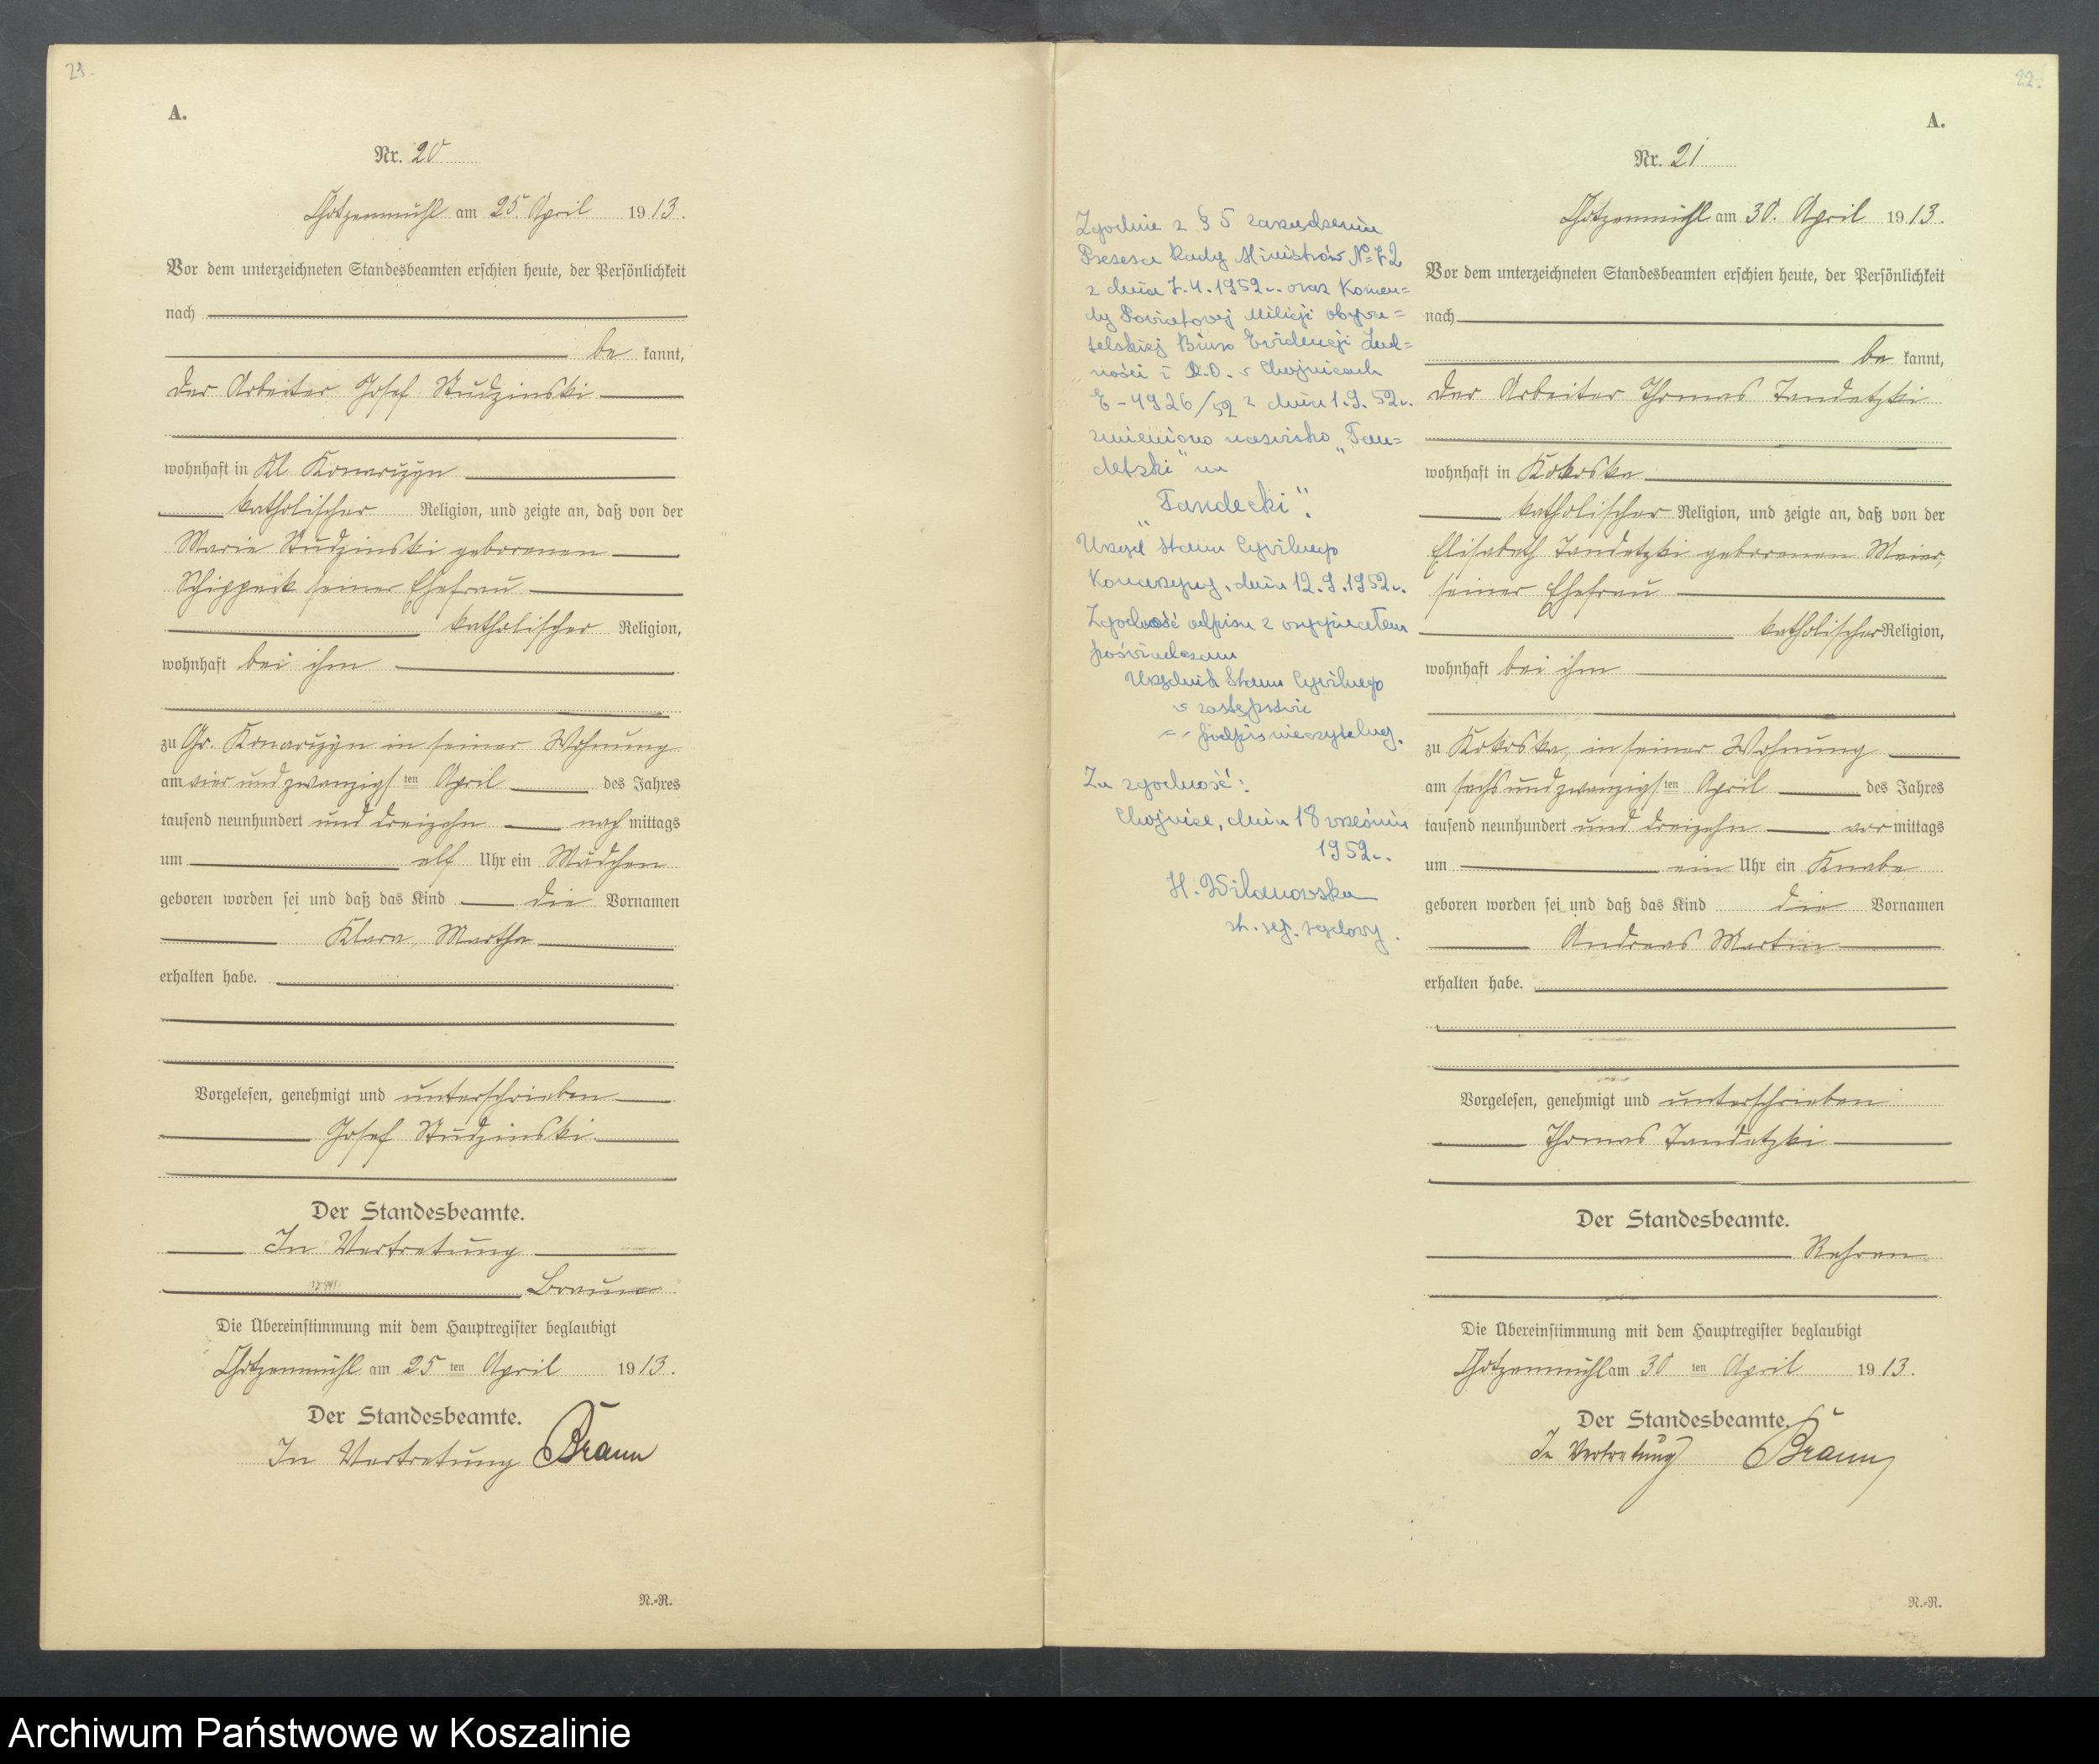 23.
A.
Nr. 20
Chotzenmühl am 25. April 1913.
Vor dem unterzeichneten Standesbeamten erschien heute, der Persönlichkeit
nach
be kannt,
der Arbeiter Josef Studzinski
wohnhaft in Kl Konarczyn
katholischer Religion, und zeigte an, daß von der
Marie Studzinski geborenen
seiner Ehefrau
katholischer Religion,
wohnhaft bei ihm
zu Gr. Konarczyn in seiner Wohnung
am vier und zwanzigsten April des Jahres
tausend neunhundert und dreizehn nach mittags
um elf Uhr ein Mädchen
geboren worden sei und daß das Kind die Vornamen
Klara, Martha
erhalten habe.
Vorgelesen, genehmigt und unterschrieben
Josef Studzinski
Der Standesbeamte.
In Vertretung
Braun
Die Übereinstimmung mit dem Hauptregister beglaubigt
Chotzenmühl am 25 ten April 1913.
Der Standesbeamte.
In Vertretung Braun
N.-R.
22.
A.
Nr. 21
Chotzenmühl am 30. April 1913.
Vor dem unterzeichneten Standesbeamten erschien heute, der Persönlichkeit
nach
be kannt,
der Arbeiter Thomas Tandetzki
wohnhaft in Kokoska
katholischer Religion, und zeigte an, daß von der
Elisabeth Tandetzki geborenen Meier,
seiner Ehefrau
katholischer Religion,
wohnhaft bei ihm
zu Kokoska, in seiner Wohnung
am sechs und zwanzigsten April des Jahres
tausend neunhundert und dreizehn vor mittags
um ein Uhr ein Knabe
geboren worden sei und daß das Kind die Vornamen
Andreas Martin
erhalten habe.
Vorgelesen, genehmigt und unterschrieben
Thomas Tandetzki
Der Standesbeamte.
Die Übereinstimmung mit dem Hauptregister beglaubigt
Chotzenmühl am 30 ten April 1913.
Der Standesbeamte.
In Vertretung Braun
N.-R.
Zgodnie z § 5 zarządzenia
Prezesa Rady Ministrów № 72
z dnia 7.4.1952 r. oraz Komen=
dy Powiatowej Milicji obywa=
telskiej Biuro Ewidencji Lud=
ności i D.O. w Chojnicach
E-4926/52 z dnia 1.9.52 r.
zmieniono nazwisko „Tan=
detzki" na
„Tandecki".
Urząd Stanu Cywilnego
Konarzyny, dnia 12.9.1952 r.
Zgodność odpisu z oryginałem
poświadczam
Urzędnik Stanu Cywilnego
w zastępstwie
-- podpis nieczytelny.
Za zgodność:
Chojnice, dnia 18 września
1952 r.
H. Wilanowska
st. rej. sądowy.
Archiwum Państwowe w Koszalinie